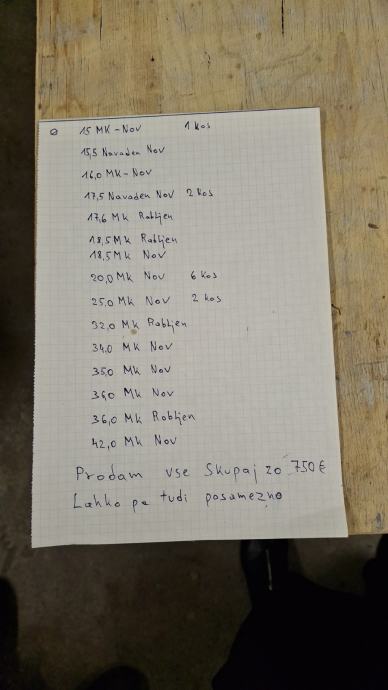 ⌀ 15 MK - Nov 1 kos
15,5 Navaden Nov
16,0 MK - Nov
17,5 Navaden Nov 2 kos
17,6 Mk Rabljen
18,5 Mk Rabljen
18,5 Mk Nov
20,0 Mk Nov 6 kos
25,0 Mk Nov 2 kos
32,0 Mk Rabljen
34,0 Mk Nov
35,0 Mk Nov
36,0 Mk Nov
36,0 Mk Rabljen
42,0 Mk Nov
Prodam vse skupaj za 750 €
Lahko pa tudi posamezno